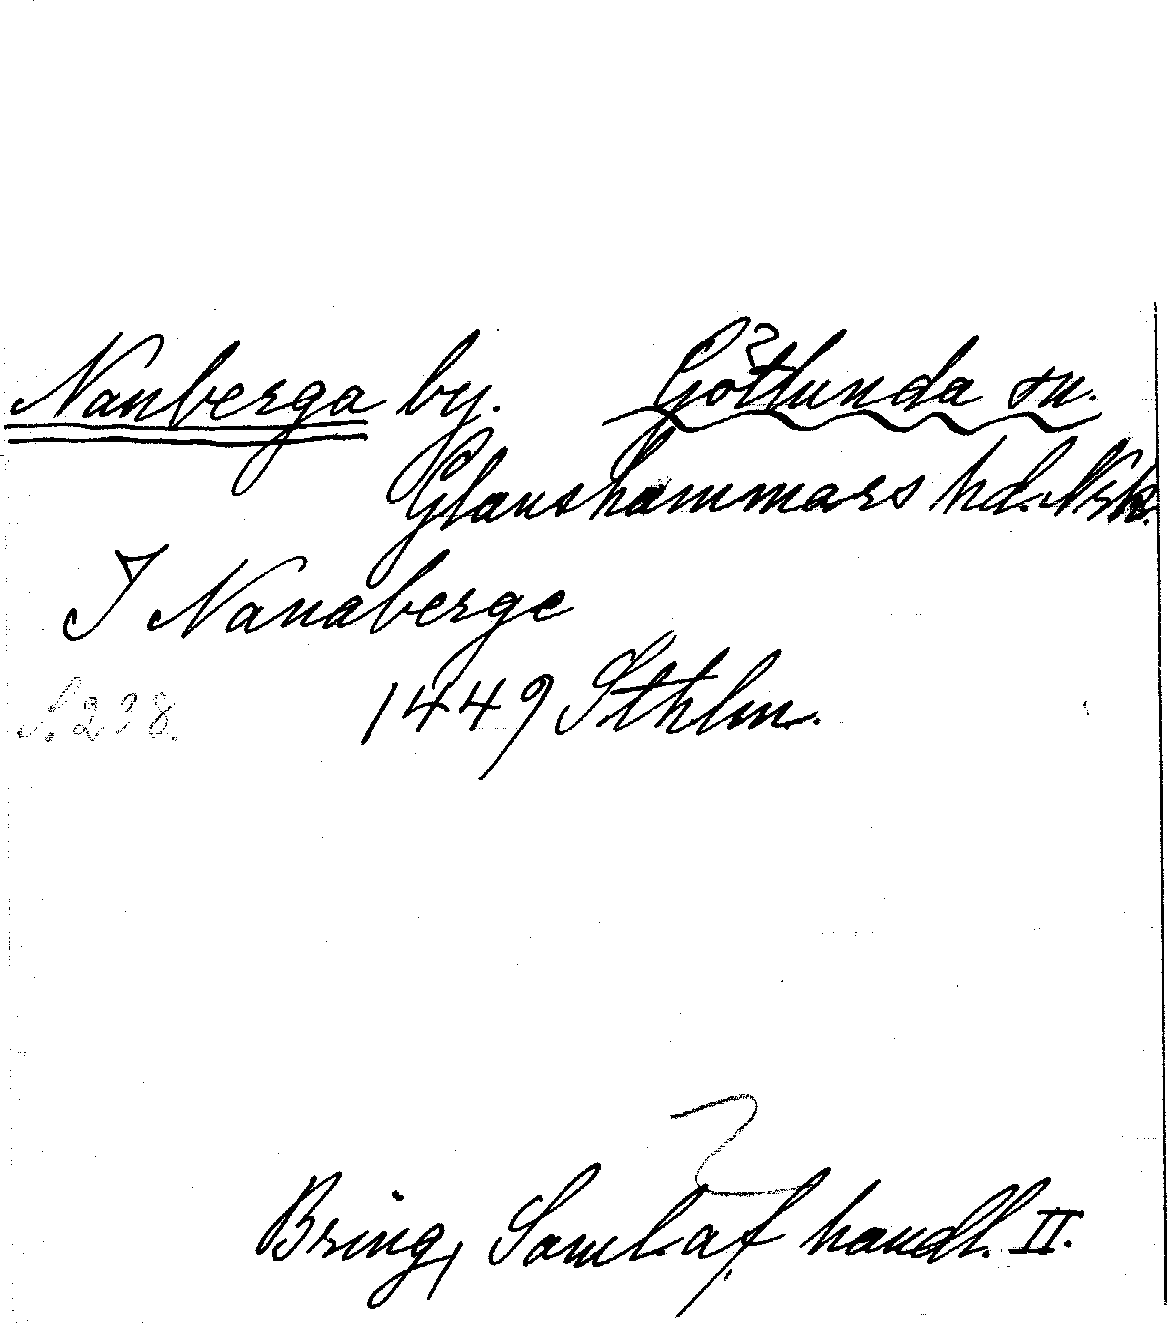 Nanberga by. Götlunda sn.
Glanshammars hd. Nrk.
J Nanaberge
S. 298. 1449 Sthlm.
Bring, Saml. af handl. II.